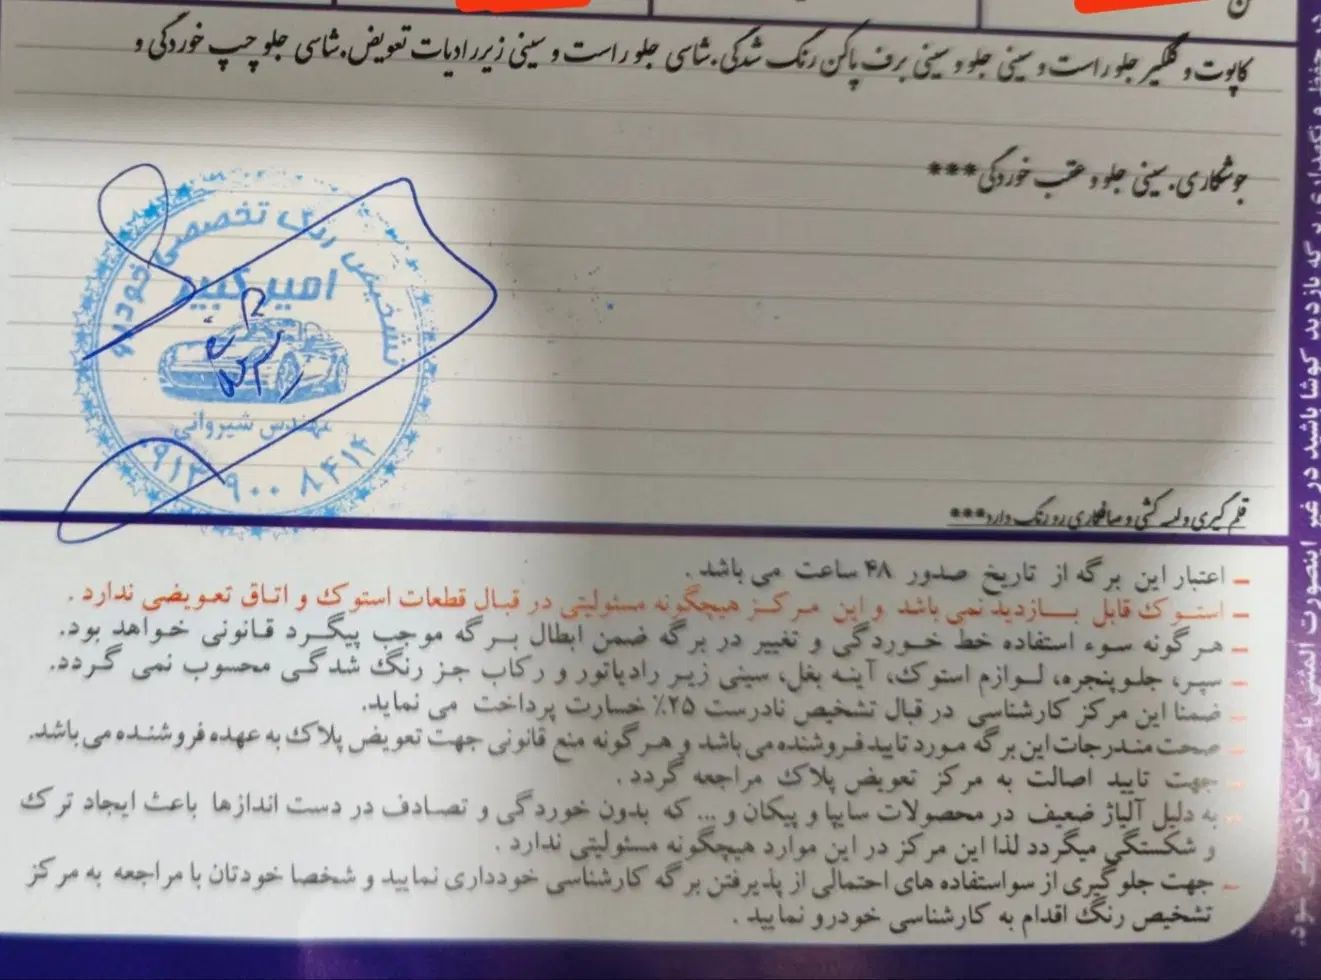 کاپوت و گلگیر جلو راست و سینی جلو و سینی برف پاکن رنگ شدگی.شاسی جلو راست و سینی زیر رادیات تعویض.شاسی جلو چپ خوردگی و
جوشکاری. سینی جلو و عقب خوردگی***
تشخیص رنگ تخصصی خودرو
امیر کبیر
مهندس شیروانی
۰۹۱۳ ۹۰۰ ۸۴۱۴
قلم گیری و لیسه کشی و صافکاری رو رنگ دارد***
– اعتبار این برگه از تاریخ صدور ۴۸ ساعت می باشد .
– استوک قابل بازدید نمی باشد و این مرکز هیچگونه مسئولیتی در قبال قطعات استوک و اتاق تعویضی ندارد .
– هرگونه سوء استفاده خط خوردگی و تغییر در برگه ضمن ابطال برگه موجب پیگرد قانونی خواهد بود.
– سپر، جلوپنجره، لوازم استوک، آینه بغل، سینی زیر رادیاتور و رکاب جز رنگ شدگی محسوب نمی گردد.
– ضمنا این مرکز کارشناسی در قبال تشخیص نادرست ۲۵٪ خسارت پرداخت می نماید.
– صحت مندرجات این برگه مورد تایید فروشنده می باشد و هرگونه منع قانونی جهت تعویض پلاک به عهده فروشنده می باشد.
– جهت تایید اصالت به مرکز تعویض پلاک مراجعه گردد .
– به دلیل آلیاژ ضعیف در محصولات سایپا و پیکان و ... که بدون خوردگی و تصادف در دست اندازها باعث ایجاد ترک
و شکستگی میگردد لذا این مرکز در این موارد هیچگونه مسئولیتی ندارد .
– جهت جلوگیری از سواستفاده های احتمالی از پذیرفتن برگه کارشناسی خودداری نمایید و شخصا خودتان با مراجعه به مرکز
تشخیص رنگ اقدام به کارشناسی خودرو نمایید .
در حفظ و نگهداری برگه بازدید کوشا باشید در غیر اینصورت المثنی با